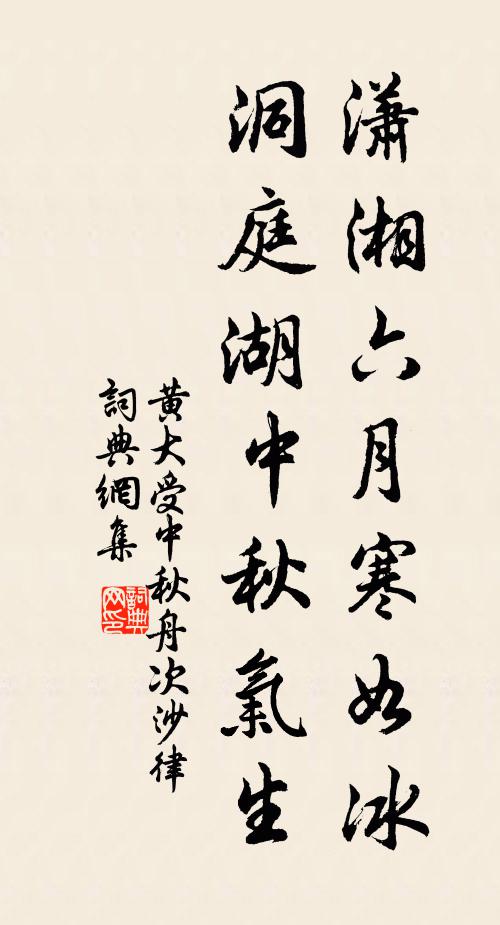 瀟湘六月寒如冰
洞庭湖中秋氣生
黃大受中秋舟次沙律
詞典網集
詞典网印